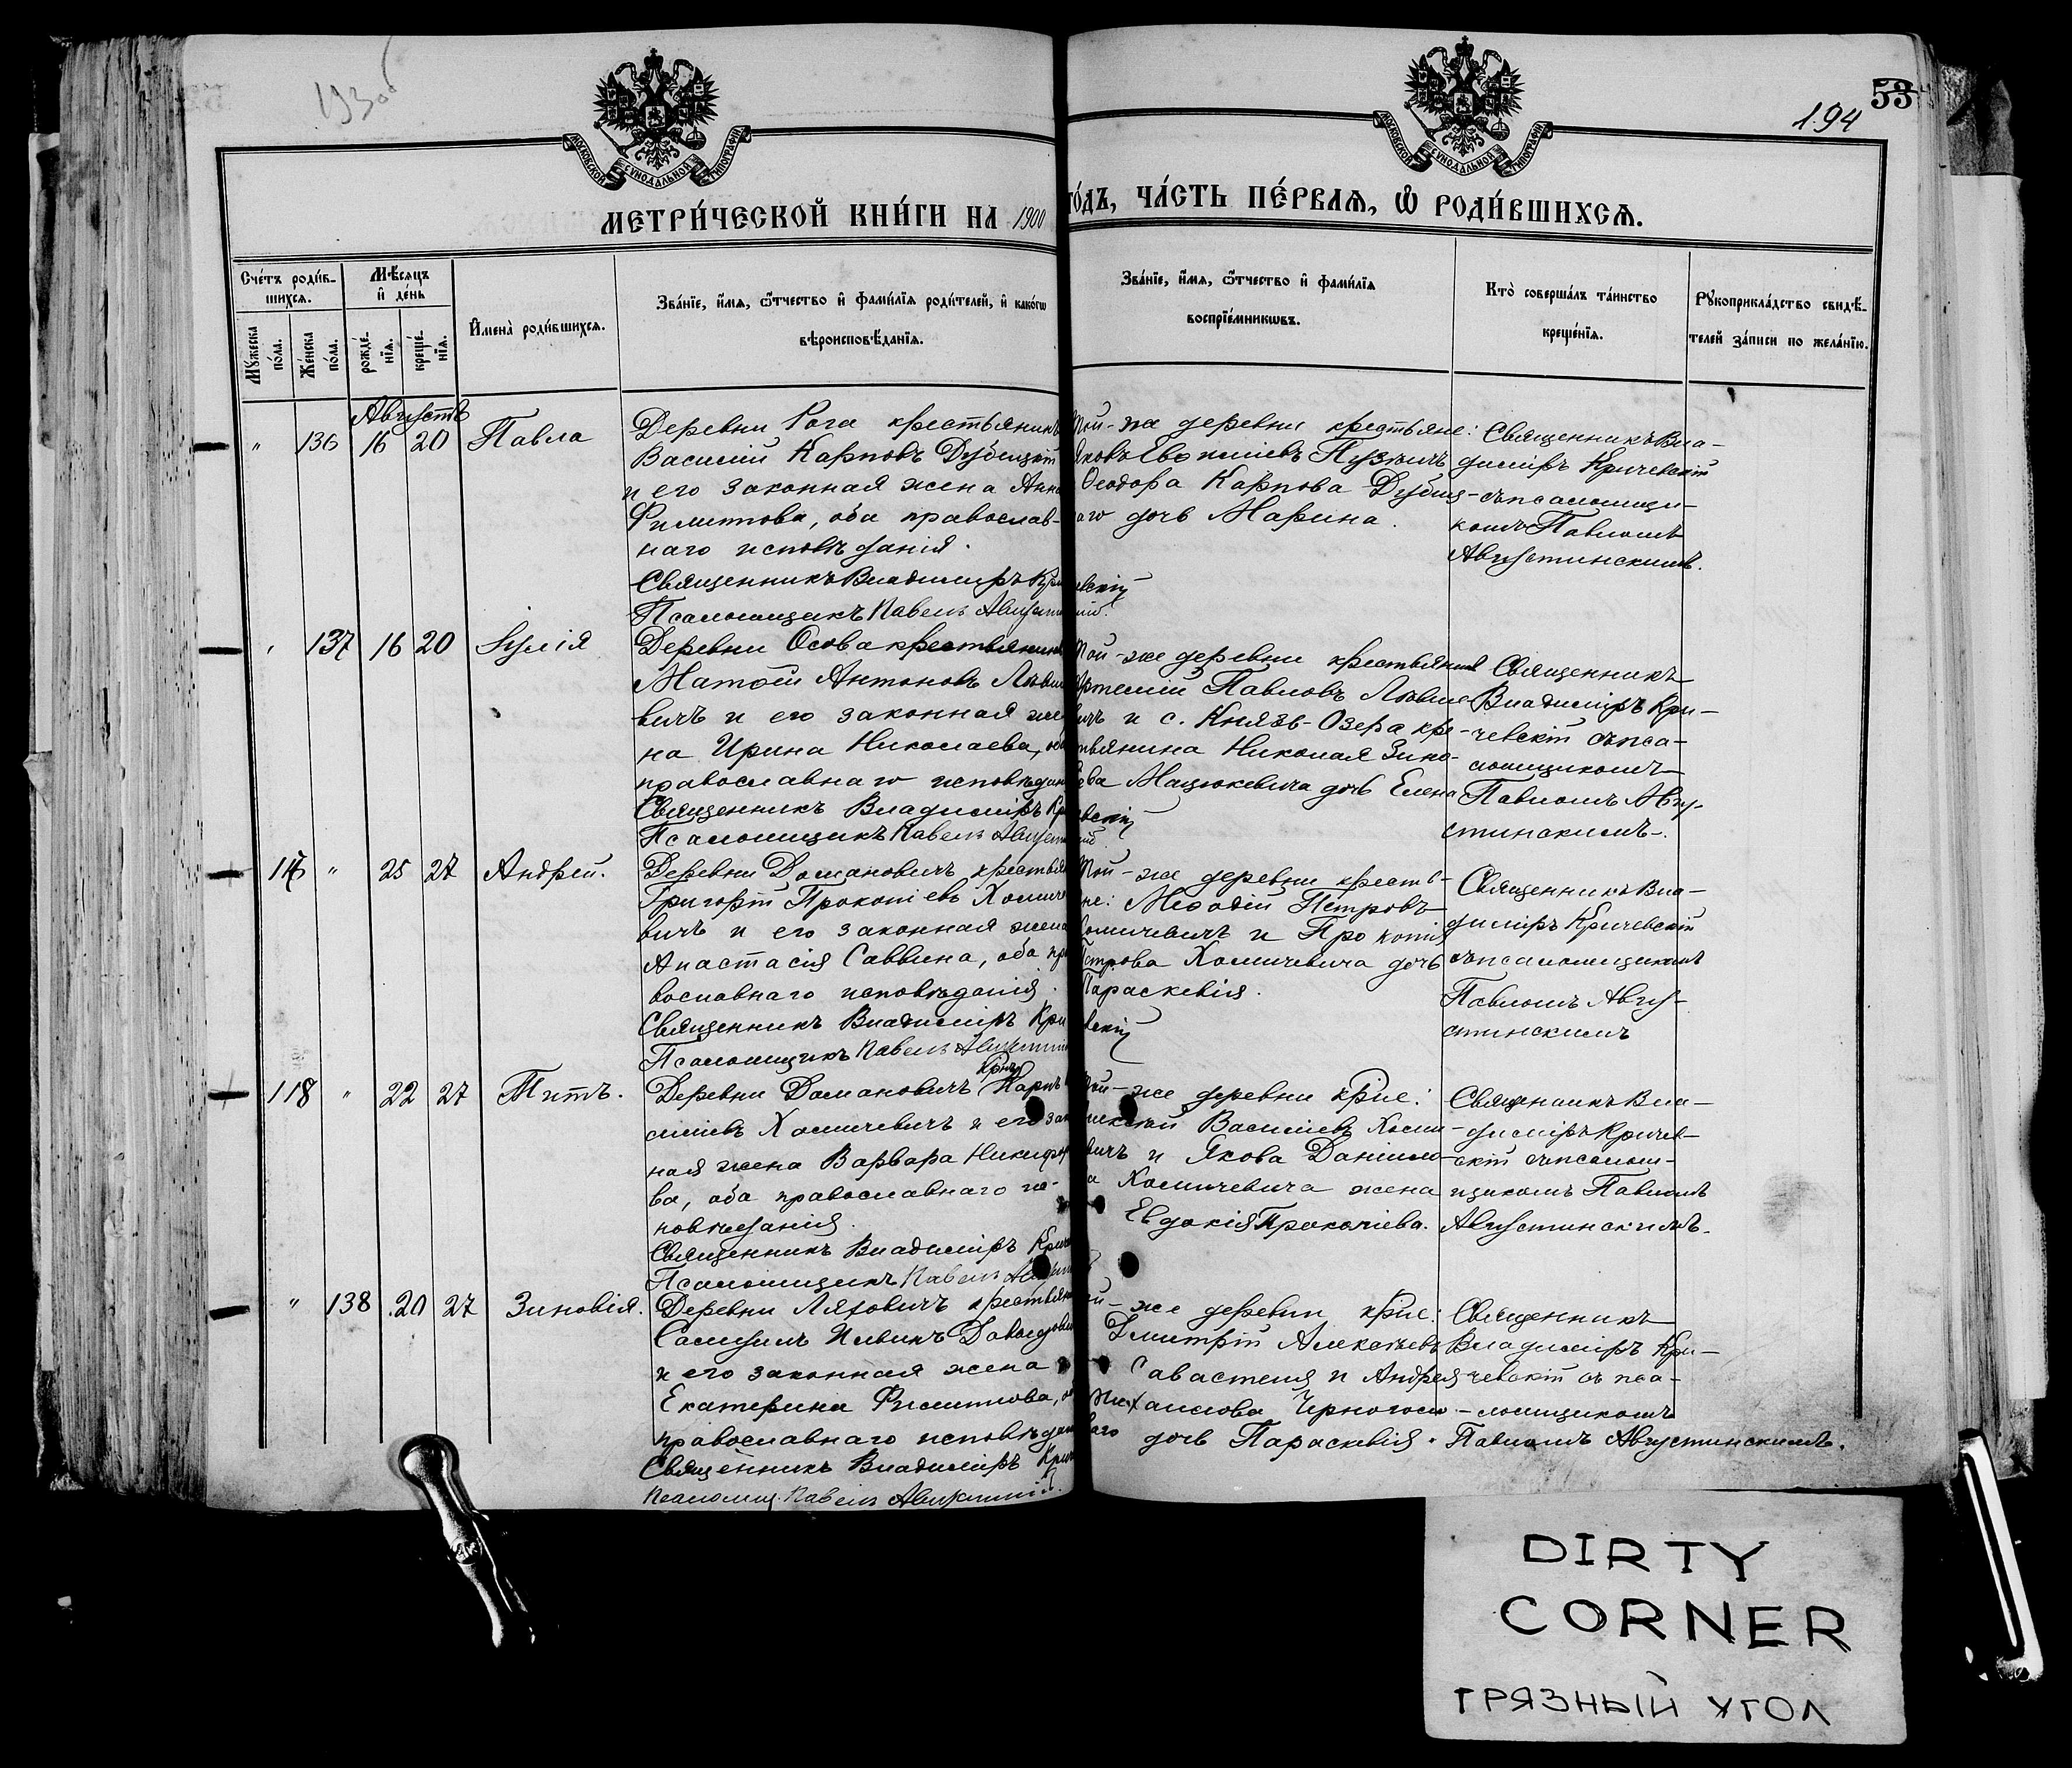 193об
53
194
МОСКОВСКОЙ СѴНОДАЛЬНОЙ ТИПОГРАФІИ
МОСКОВСКОЙ СѴНОДАЛЬНОЙ ТИПОГРАФІИ
МЕТРИ́ЧЕСКОЙ КНИ́ГИ НА 1900 ГО́ДЪ, ЧА́СТЬ ПЕ́РВАѦ, Ѽ РОДИ́ВШИХСѦ.
Сче́тъ роди́в-
шихсѧ.
Мꙋжеска по́ла.
Же́нска по́ла.
Мѣ́сѧцъ и҆ де́нь
рожде́-нїѧ.
креще́-нїѧ.
И҆мена̀ роди́вшихсѧ.
Зва́нїе, и҆́мѧ, ѻ҆́тчество и҆ фамі́лїѧ роди́телей, и҆ како́гѡ
вѣроисповѣ́данїѧ.
Зва́нїе, и҆́мѧ, ѻ҆́тчество и҆ фамі́лїѧ
воспрїе́мникѡвъ.
Кто̀ соверша́лъ та́инство
креще́нїѧ.
Рꙋкоприкла́дство свидѣ́-
телей за́писи по жела́нїю.
Августъ
" 136 16 20 Павла
Деревни Рога крестьянинъ
Василій Карповъ Дубицкій
и его законная жена Анна
Филиппова, оба православ-
наго исповѣданія.
Священникъ Владиміръ Кричевскій
Псаломщикъ Павелъ Августинскій.
Той-же деревни крестьяне:
Яковъ
Ѳеодора Карпова Дубиц-
каго дочь Марина.
Священникъ Вла-
диміръ Кричевскій
съ псаломщи-
комъ Павломъ
Августинскимъ.
" 137 16 20 Іулія
Деревни Осова крестьянинъ
Матѳій Антоновъ
вичъ и его законная же-
на Ирина Николаева, оба
православнаго исповѣданія
Священникъ Владиміръ Кричевскій
Псаломщикъ Павелъ Августинскій
Той-же деревни крестьянинъ
Артемій Павловъ
вичъ и с. Князь-Озера кре-
стьянина Николая Зино-
вьева Мацюкевича дочь Елена
Священникъ
Владиміръ Кри-
чевскій съ пса-
ломщикомъ
Павломъ Авгу-
стинскимъ.
" 25 27 Андрей.
Деревни Домановичъ крестьянинъ
Григорій Прокопіевъ Хомиче-
вичъ и его законная жена
Анастасія Саввина, оба пра-
вославнаго исповѣданія.
Священникъ Владиміръ Кричевскій
Псаломщикъ Павелъ Августинскій
Той-же деревни кресть-
яне: Меѳодій Петровъ
Хомичевичъ и Прокопія
Петрова Хомичевича дочь
Параскевія.
Священникъ Вла-
диміръ Кричевскій
съ псаломщикомъ
Павломъ Авгу-
стинскимъ
118 " 22 27 Титъ.
Деревни Домановичъ Карпъ
Хомичевичъ и его закон-
ная жена Варвара Никифоро-
ва, оба православнаго ис-
повѣданія.
Священникъ Владиміръ Кричевскій
Псаломщикъ Павелъ Августинскій
Той-же деревни кр-не:
Алексій Василіевъ Хоми-
чевичъ и Якова Даніило-
ва Хомичевича жена
Евдокія Прокопіева.
Священникъ Вла-
диміръ Кричев-
скій съ псалом-
щикомъ Павломъ
Августинскимъ.
" 138 20 27 Зиновія.
Деревни Ляховичъ крестьянинъ
Самуилъ
и его законная жена
Екатерина Филиппова, оба
православнаго исповѣданія
Священникъ Владиміръ Кричевскій
Псаломщ. Павелъ Августинскій.
Той-же деревни кр-не:
Димитрій Алексѣевъ
Савастеня и Андрея
Михаилова
дочь Параскевія.
Священникъ
Владиміръ Кри-
чевскій съ пса-
ломщикомъ
Павломъ Августинскимъ.
DIRTY
CORNER
ГРЯЗНЫЙ УГОЛ